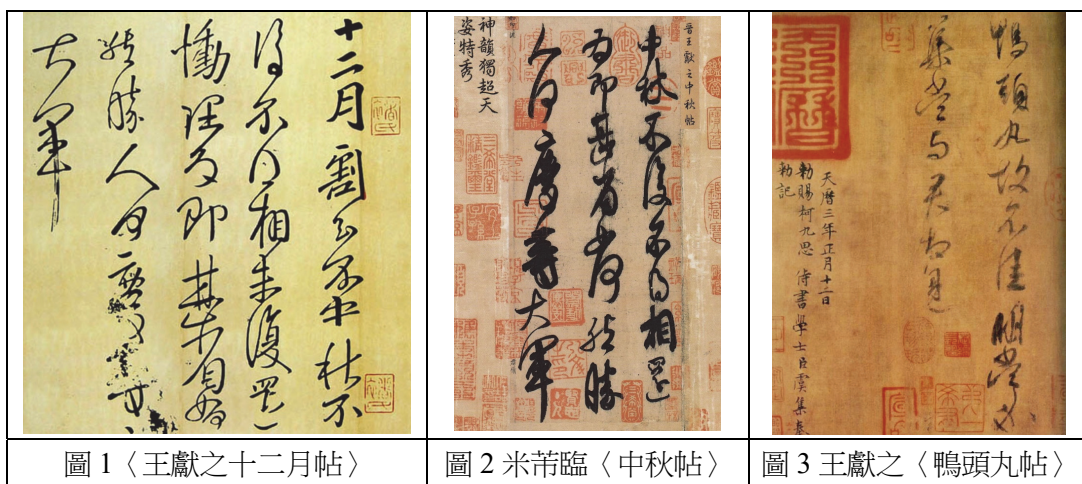 十二月割至不中秋不
復不得相未復還
慟理為即甚省如
然勝人何慶等
大軍
晉王獻之中秋帖
中秋不復不得相還
為即甚省如何然勝
人何慶等大軍
神韻獨超天
姿特秀
鴨頭丸故不佳明當必
集當與君相見
天曆三年正月十二日
勅賜柯九思 侍書學士臣虞集奉
勅記
圖 1〈王獻之十二月帖〉
圖 2 米芾臨〈中秋帖〉
圖 3 王獻之〈鴨頭丸帖〉